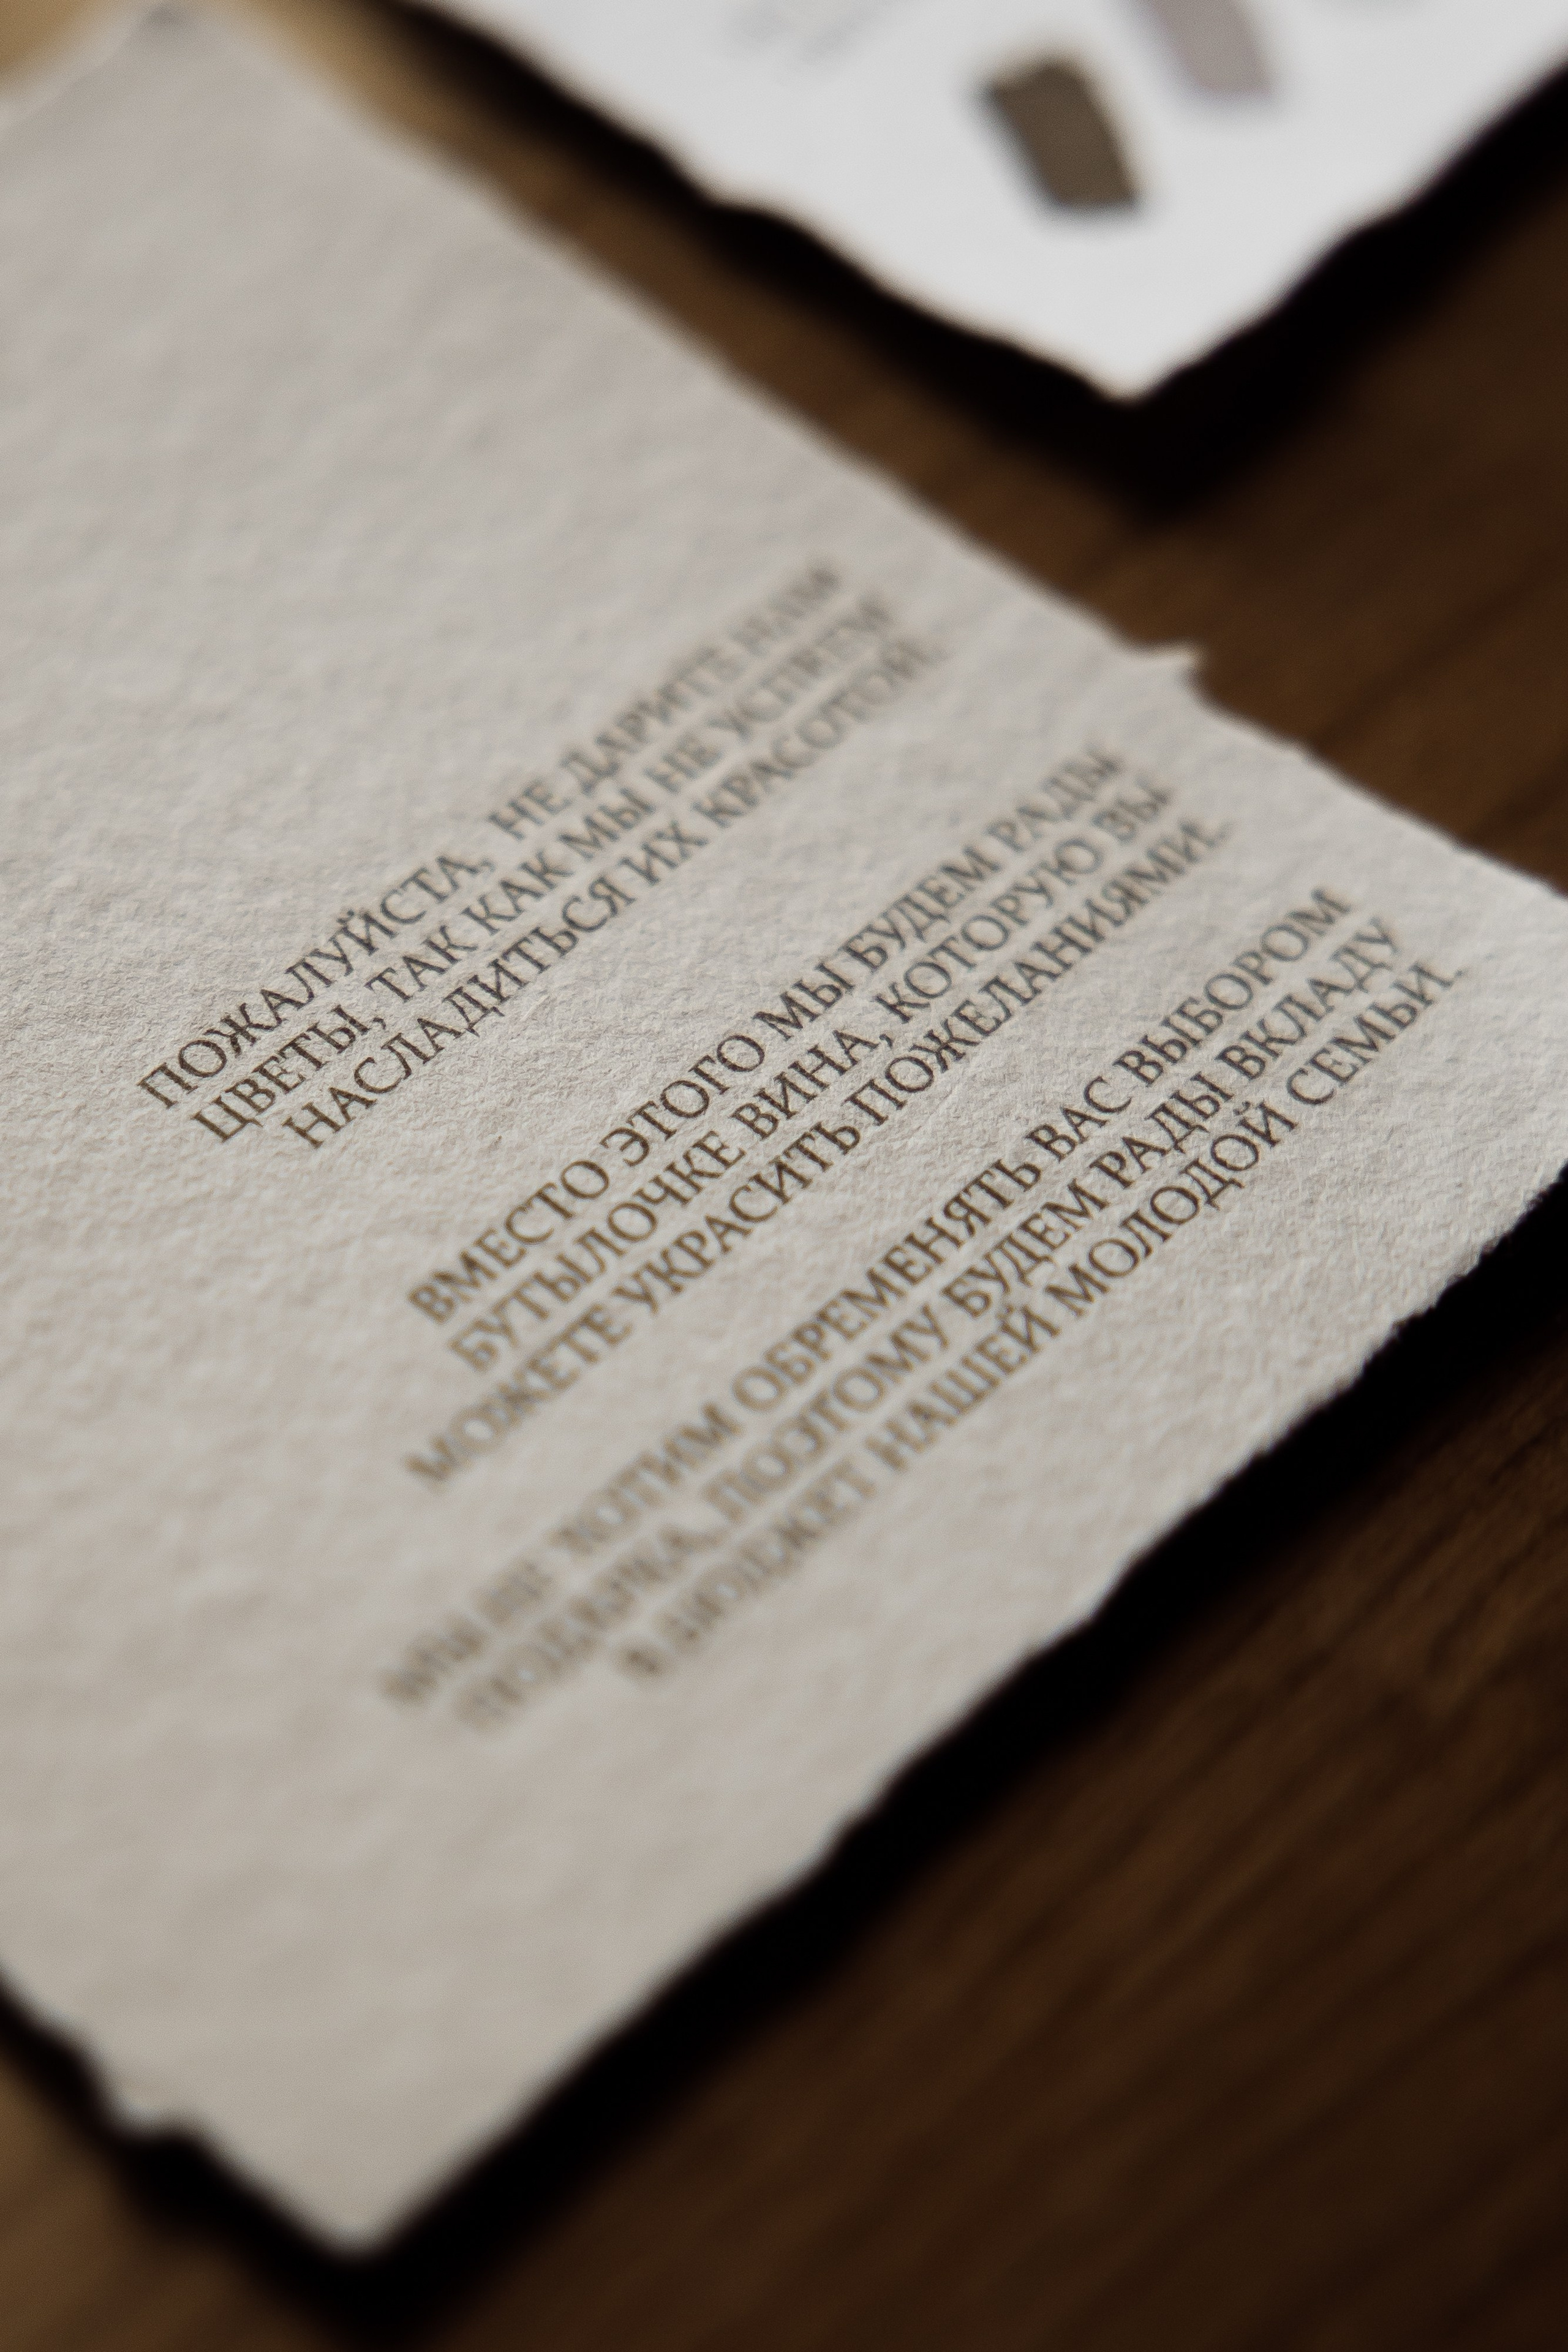 ПОЖАЛУЙСТА, НЕ ДАРИТЕ НАМ
ЦВЕТЫ, ТАК КАК МЫ НЕ УСПЕЕМ
НАСЛАДИТЬСЯ ИХ КРАСОТОЙ.
ВМЕСТО ЭТОГО МЫ БУДЕМ РАДЫ
БУТЫЛОЧКЕ ВИНА, КОТОРУЮ ВЫ
МОЖЕТЕ УКРАСИТЬ ПОЖЕЛАНИЯМИ.
МЫ НЕ ХОТИМ ОБРЕМЕНЯТЬ ВАС ВЫБОРОМ
ПОДАРКА, ПОЭТОМУ БУДЕМ РАДЫ ВКЛАДУ
В БЮДЖЕТ НАШЕЙ МОЛОДОЙ СЕМЬИ.